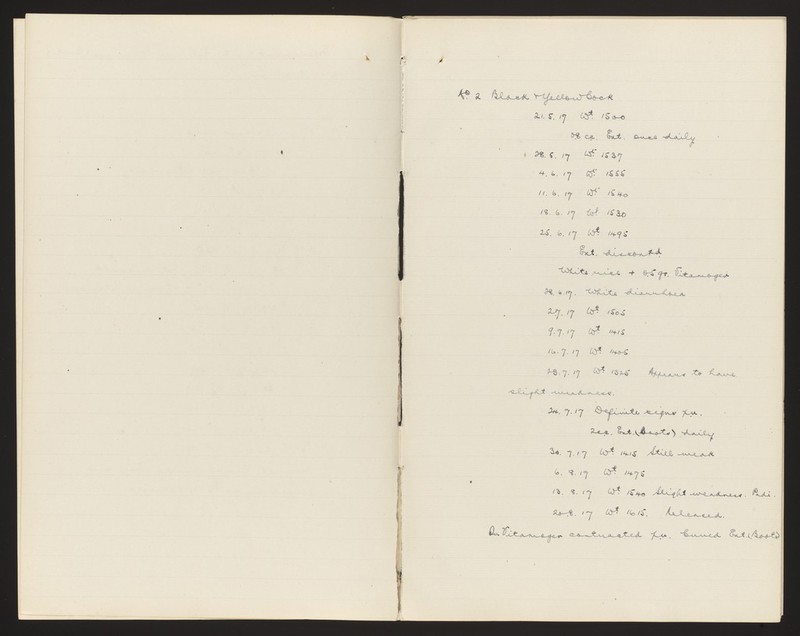 No 2 Black & Yellow Cock
21.5.17 Wt 1500
Ext. once daily
28.5.17 Wt 1537
4.6.17 Wt 1555
11.6.17 Wt 1540
18.6.17 Wt 1530
25.6.17 Wt 1495
Ext. discontd.
White rice +
28.6.17. White diarrhoea
2.7.17 Wt 1505
9.7.17 Wt 1415
16.7.17 Wt 1405
23.7.17 Wt 1325 Appears to have
slight weakness.
24.7.17 Definite signs
Ext. (Boots) daily
30.7.17 Wt 1415 Still weak
6.8.17 Wt 1475
13.8.17 Wt 1540 Slight weakness.
20.8.17 Wt 1615. Released
On contracted Cured Ext (Boots)